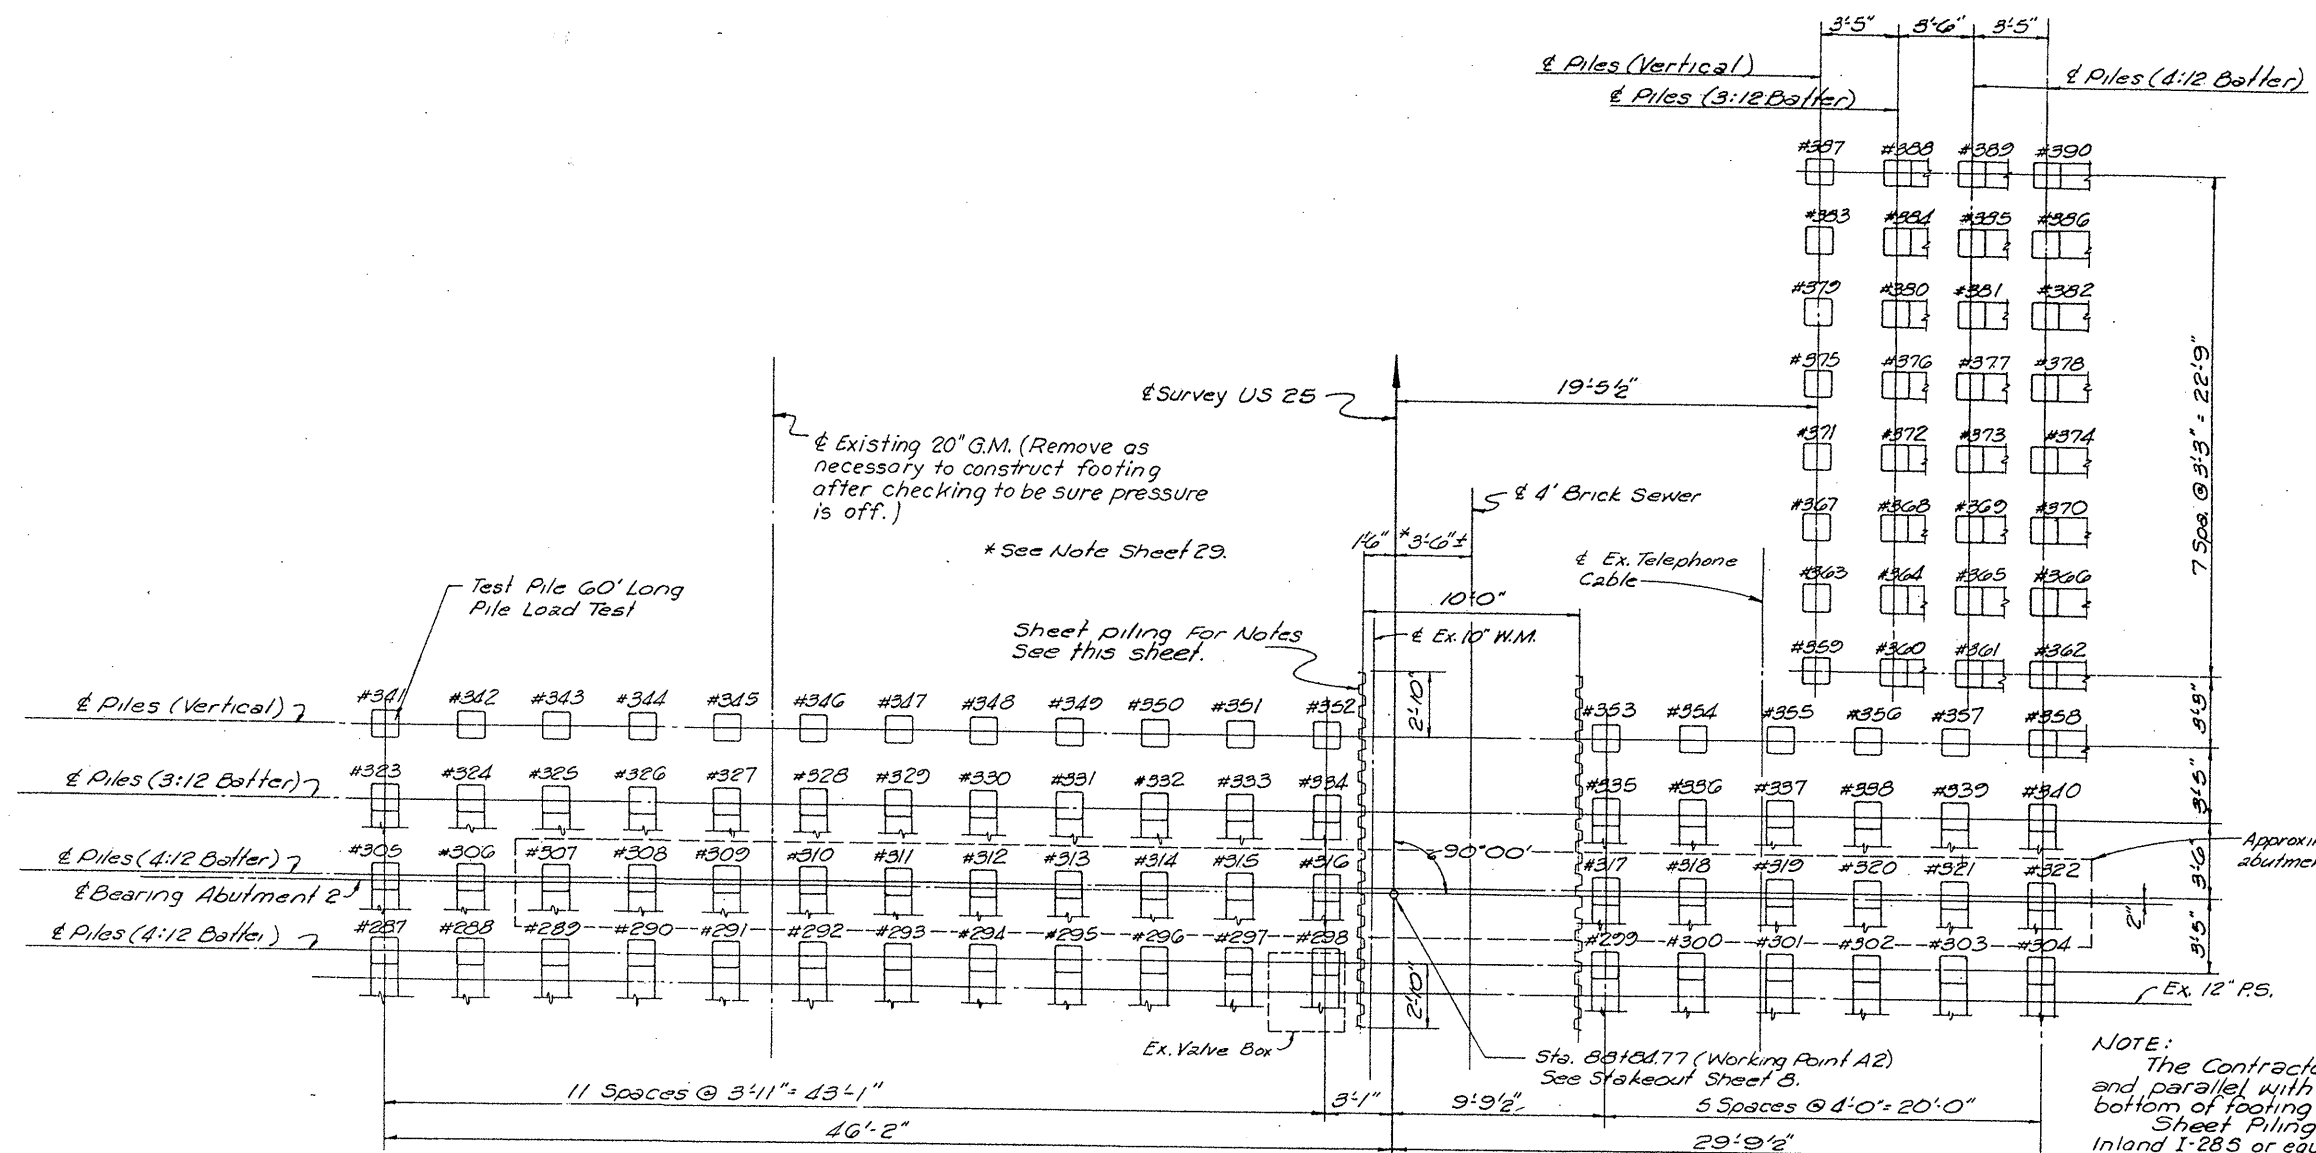 3'-5" 3'-6" 3'-5"
℄ Piles (Vertical)
℄ Piles (4:12 Batter)
℄ Piles (3:12 Batter)
#387 #388 #389 #390
#383 #384 #385 #386
#379 #380 #381 #382
#375 #376 #377 #378
℄ Survey US 25
19'-5½"
7 Spa. @ 3'-3" = 22'-9"
℄ Existing 20" G.M. (Remove as
necessary to construct footing
after checking to be sure pressure
is off.)
#371 #372 #373 #374
℄ 4' Brick Sewer
#367 #368 #369 #370
* See Note Sheet 29.
1'-6" *3'-6"±
℄ Ex. Telephone
Cable
#363 #364 #365 #366
Test Pile 60' Long
Pile Load Test
10'-0"
Sheet piling For Notes
See this sheet.
℄ Ex. 10" W.M.
#359 #360 #361 #362
℄ Piles (Vertical)
#341 #342 #343 #344 #345 #346 #347 #348 #349 #350 #351 #352
2'-10"
#353 #354 #355 #356 #357 #358
3'-3"
℄ Piles (3:12 Batter)
#323 #324 #325 #326 #327 #328 #329 #330 #331 #332 #333 #334
#335 #336 #337 #338 #339 #340
3'-5"
℄ Piles (4:12 Batter)
#305 #306 #307 #308 #309 #310 #311 #312 #313 #314 #315 #316
90°00'
#317 #318 #319 #320 #321 #322
3'-6"
℄ Bearing Abutment 2
2"
℄ Piles (4:12 Batter)
#287 #288 #289 #290 #291 #292 #293 #294 #295 #296 #297 #298
#299 #300 #301 #302 #303 #304
3'-5"
2'-10"
Ex. 12" P.S.
Ex. Valve Box
Sta. 88+84.77 (Working Point A2)
See Stakeout Sheet 8.
NOTE:
The
and parallel with
bottom of footing
Sheet Piling
Inland I-28S or
11 Spaces @ 3'-11" = 43'-1"
3'-1"
9'-9½"
5 Spaces @ 4'-0" = 20'-0"
46'-2"
29'-9½"